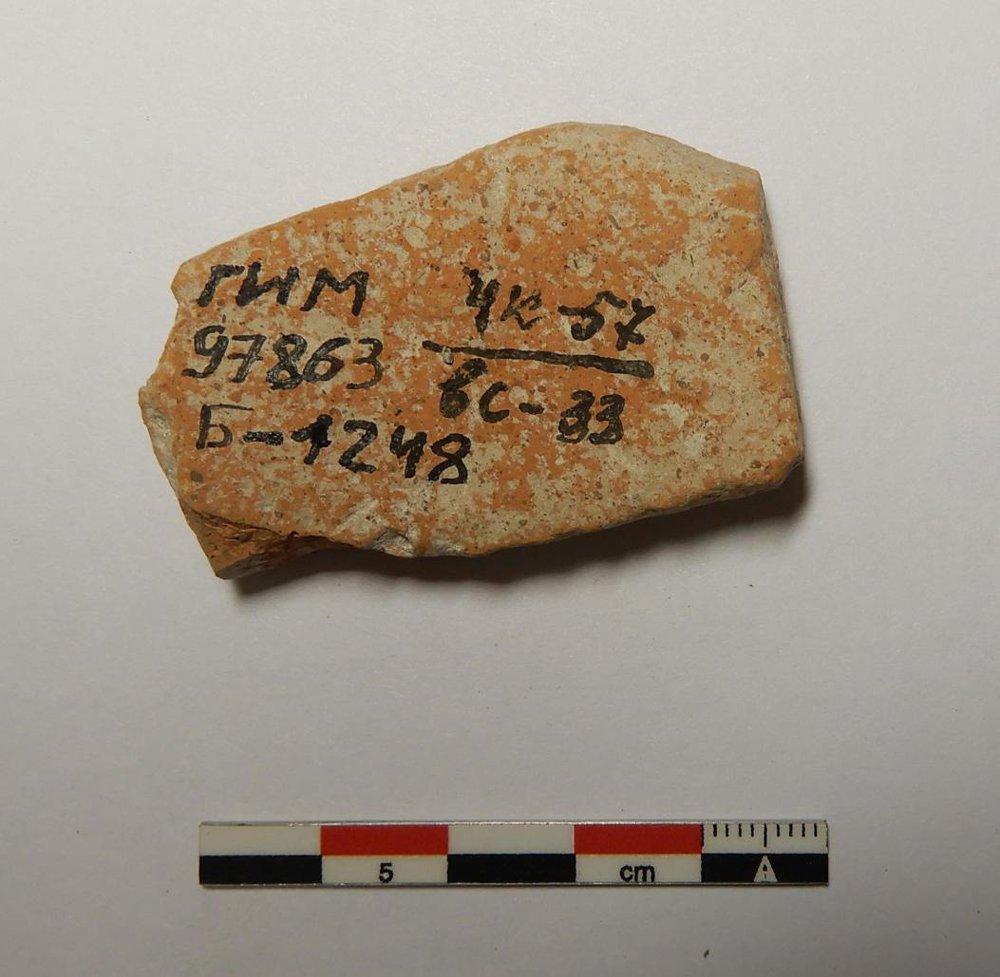 ГИМ
97863
Б-1248
ЧК-57
ВС-33
5 cm